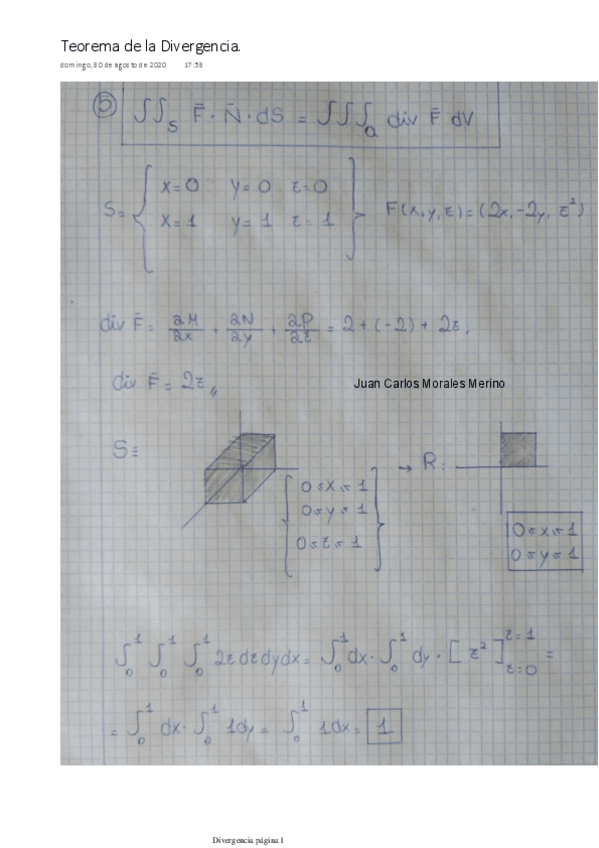 Teorema de la Divergencia.
domingo, 30 de agosto de 2020 17:58
5 ∫∫_S F̄ · N̄ · dS = ∫∫∫_Q div F̄ dV
S = { x=0 y=0 z=0
x=1 y=1 z=1 } F(x,y,z) = (2x, -2y, z²)
div F̄ = ∂M/∂x + ∂N/∂y + ∂P/∂z = 2 + (-2) + 2z,
div F̄ = 2z,,
Juan Carlos Morales Merino
S ≡
{ 0≤x≤1
0≤y≤1
0≤z≤1 }
→ R:
0≤x≤1
0≤y≤1
∫₀¹ ∫₀¹ ∫₀¹ 2z dz dy dx = ∫₀¹ dx · ∫₀¹ dy · [z²]_{z=0}^{z=1} =
= ∫₀¹ dx · ∫₀¹ 1dy = ∫₀¹ 1dx = 1
Divergencia página 1